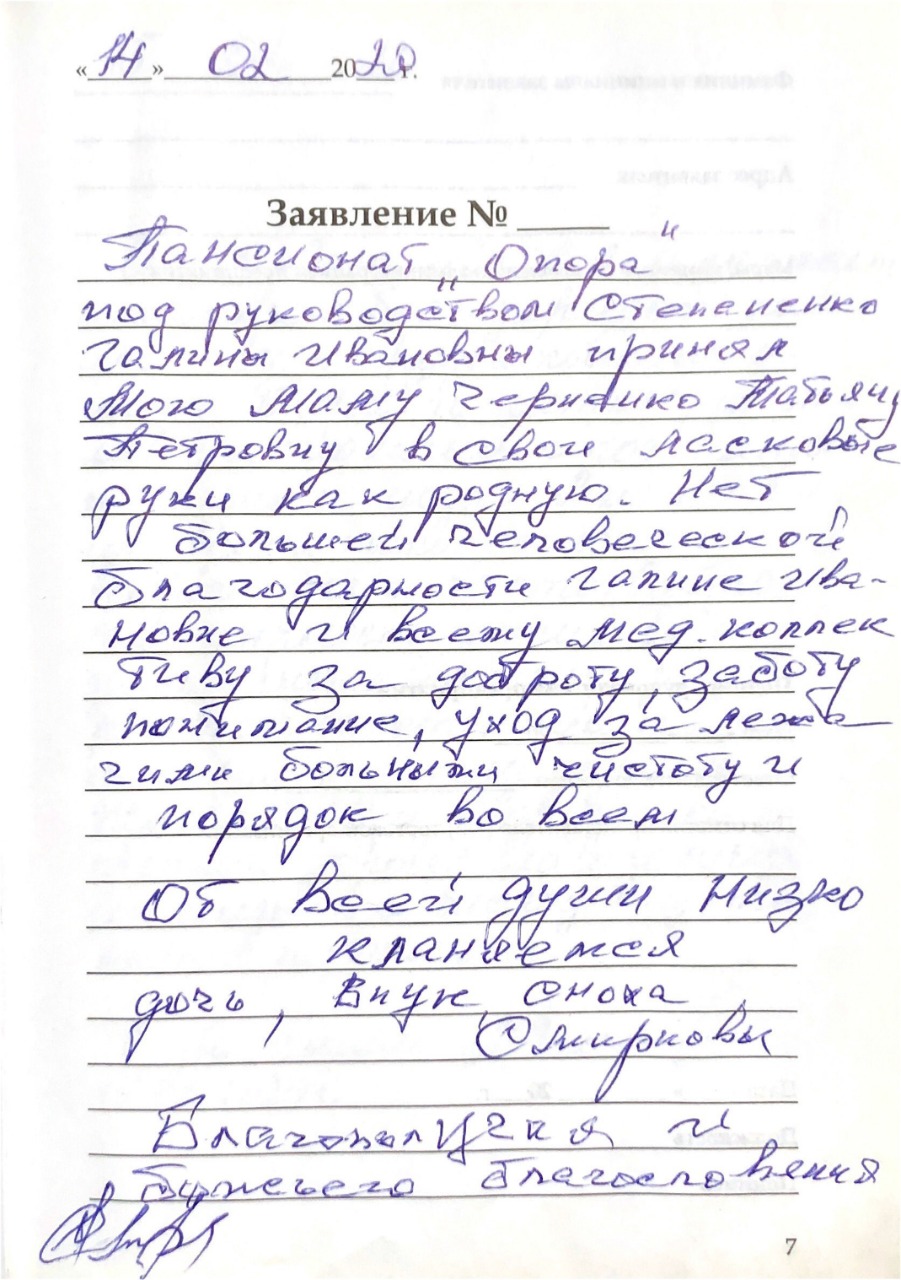 «14» 02 2020 г.
Заявление № ____
Пансионат „Опора"
под руководством Степаненко
Галины Ивановны принял
Мою Маму Черненко Татьяну
Петровну в свои ласковые
руки как родную. Нет
большей человеческой
благодарности Галине Ива-
новне и всему мед. коллек
тиву за доброту, заботу
понимание, уход за лежа
чими больными чистоту и
порядок во всем
От всей души низко
кланяемся
дочь, внук, сноха
Смирновы
Благополучия и
божьего благословения
7